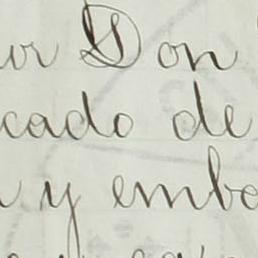 ur Don
cado de
y embo